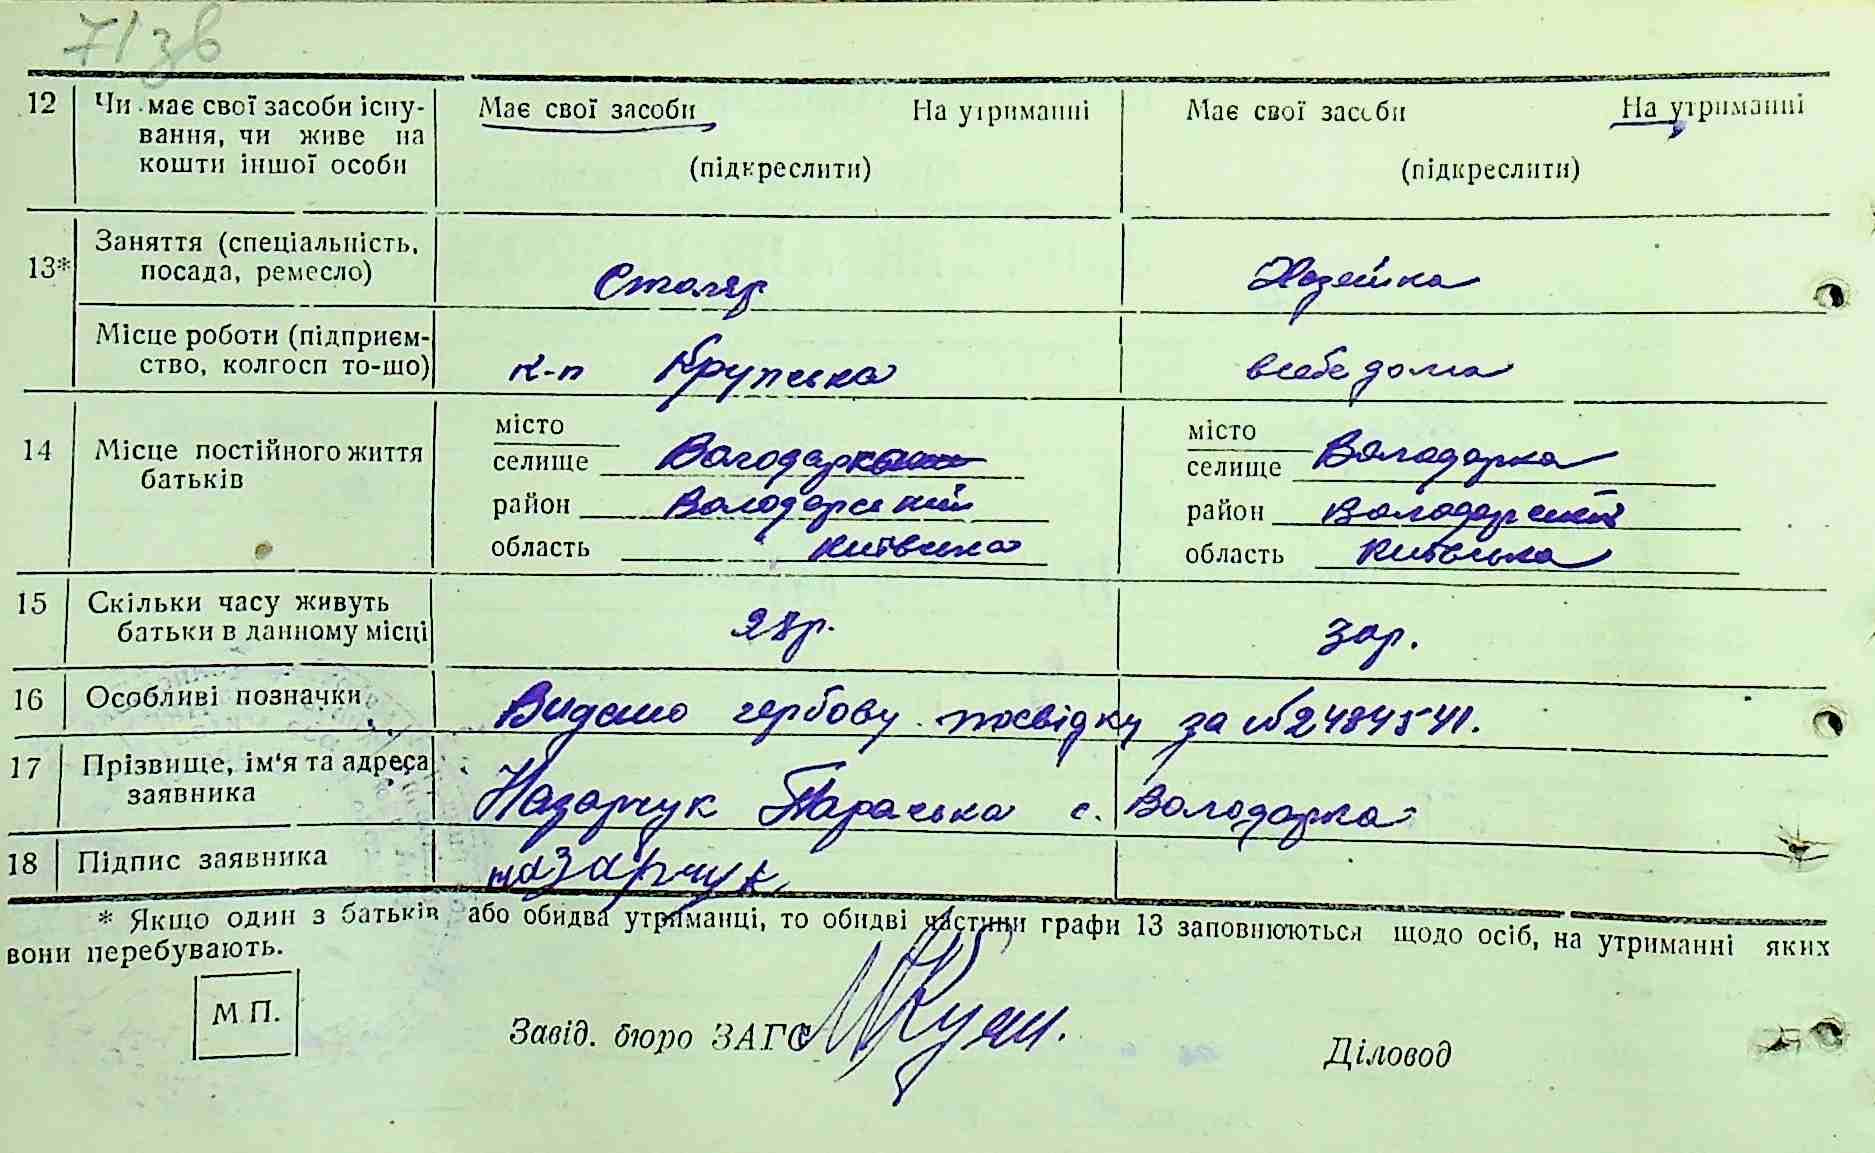 71зв
12 Чи має свої засоби існу- Має свої засоби На утриманні Має свої засоби На утриманні
вання, чи живе на
кошти іншої особи (підкреслити) (підкреслити)
13* Заняття (спеціальність,
посада, ремесло) Столяр Хозейка
Місце роботи (підприєм-
ство, колгосп то-що) к-п Крупська всебе дома
14 Місце постійного життя місто місто
батьків селище Володарка селище Володарка
район Володарский район Володарский
область Київська область Київська
15 Скільки часу живуть
батьки в данному місці 28р. 30р.
16 Особливі позначки Видано гербову посвідку за №2484541.
17 Прізвище, ім'я та адреса
заявника Назарчук Параська с. Володарка
18 Підпис заявника назарчук
* Якщо один з батьків або обидва утриманці, то обидві частини графи 13 заповнюються щодо осіб, на утриманні яких
вони перебувають.
М П.
Завід. бюро ЗАГС Діловод